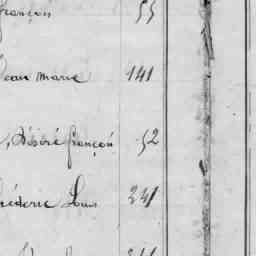 françois 55
Jean Marie 141
, Désiré françois 52
rédéric Louis 241